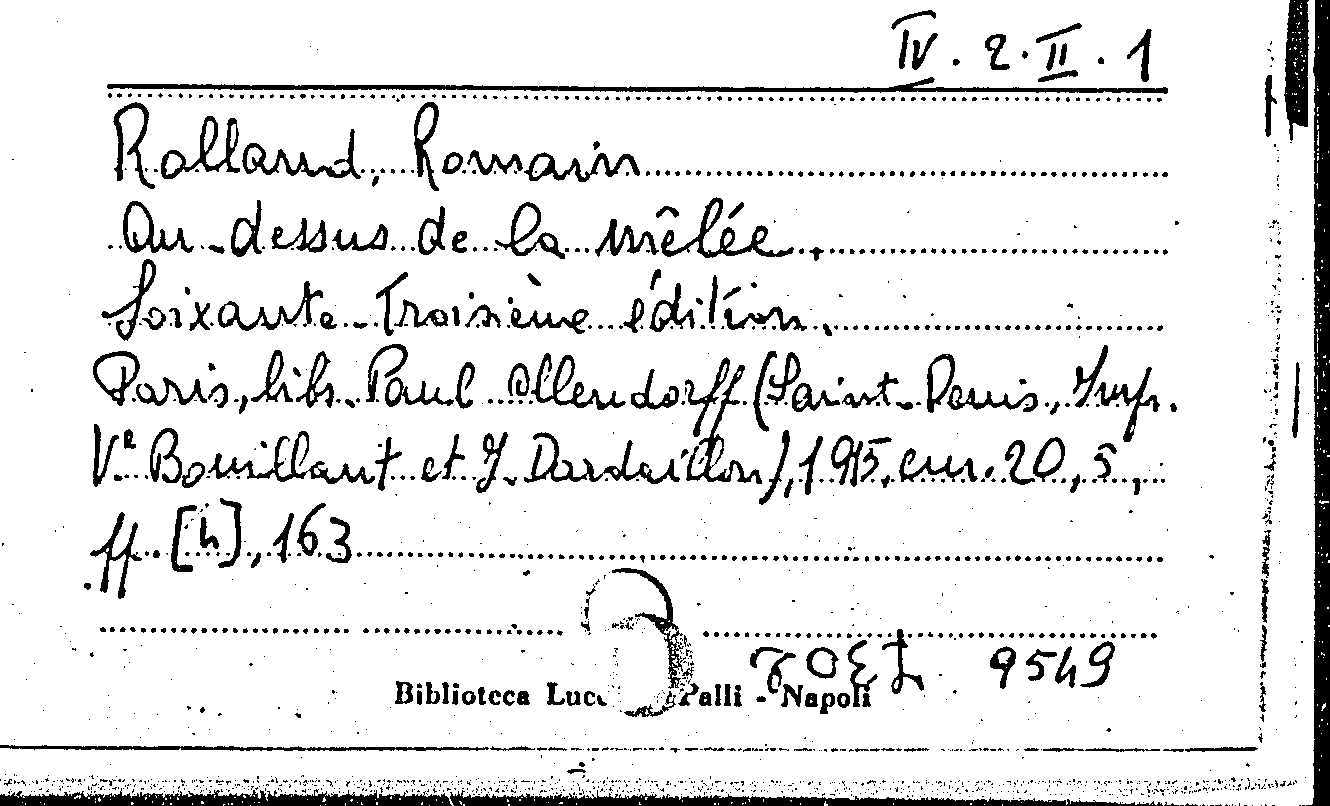 IV. 2. II. 1
Rolland, Romain
Au-dessus de la mêlée.
Soixante-Troisième édition.
Paris, libr. Paul Ollendorff (Saint-Denis, Impr.
Vᵉ Bouillant et J. Dardaillon), 1915, cm. 20,5,
ff. [4], 163
9549
Biblioteca Lucc Palli - Napoli